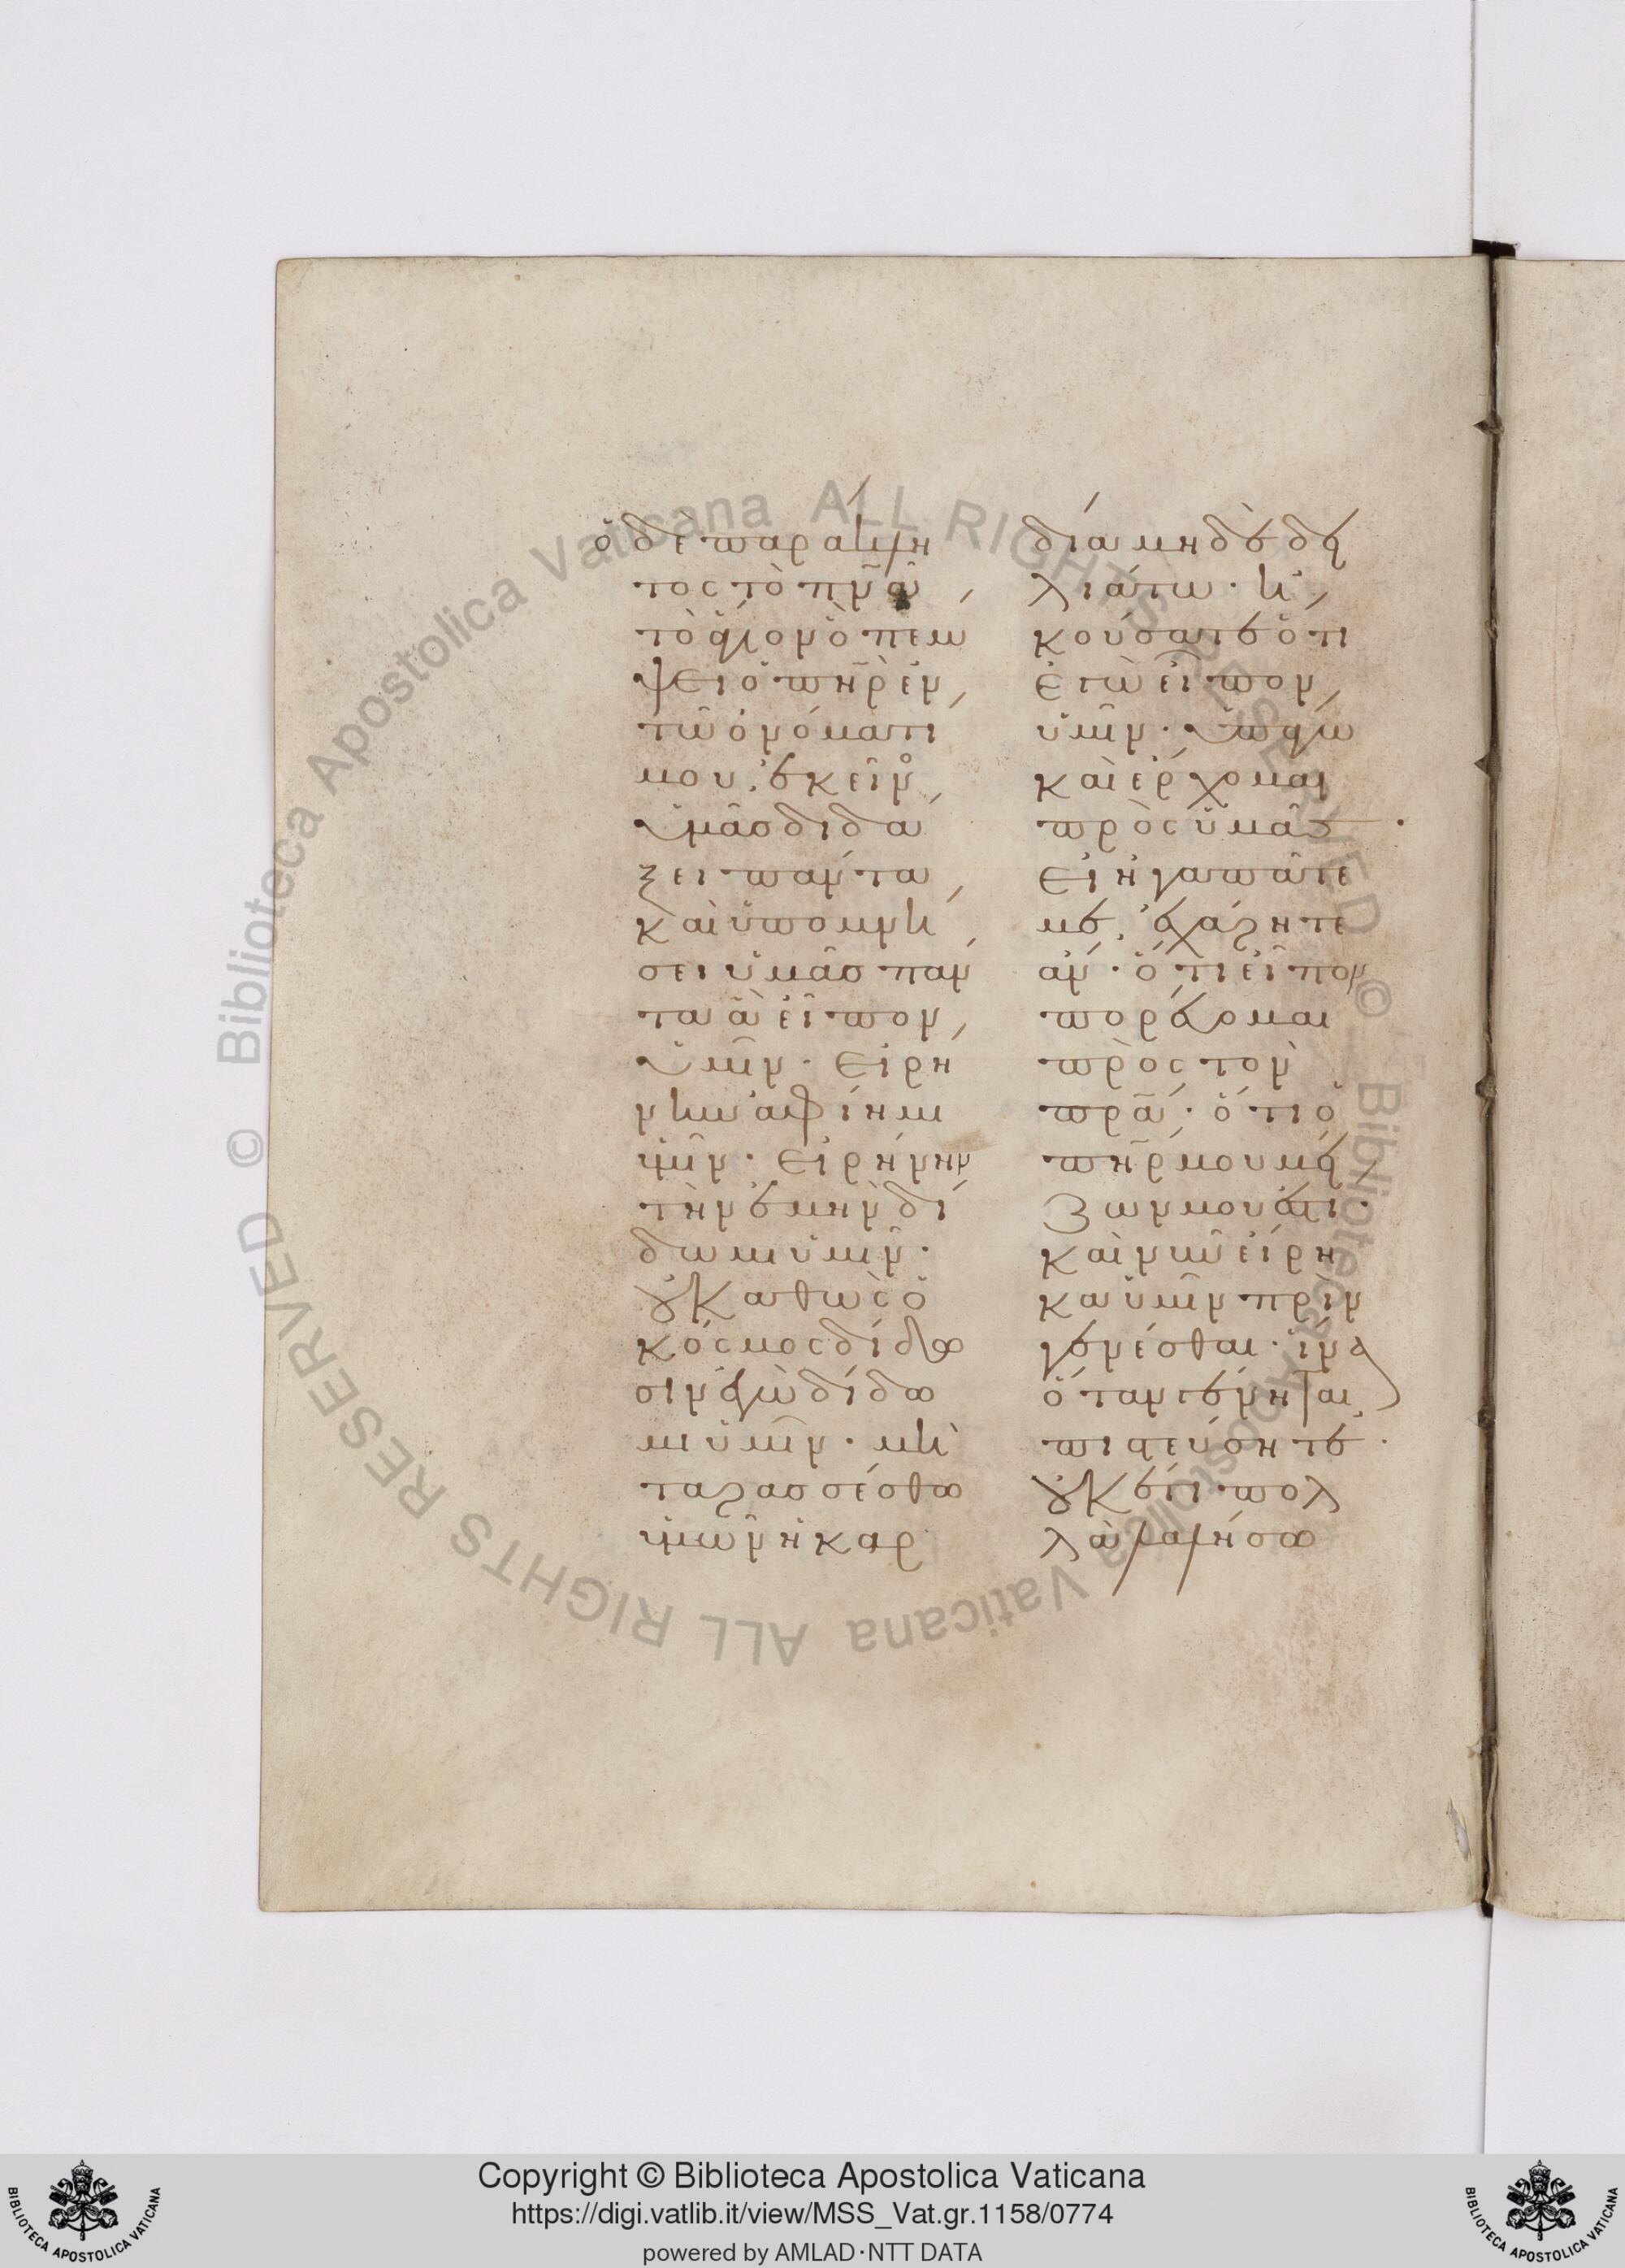 ὁ δὲ παράκλη
τος τὸ πνᾶ
τὸ ἅγιον ὃ πεμ
ψει ὁ πηρ ἐν
τῶ ὀνόματί
μου, ἐκεῖνο
ὑμᾶσ διδά
ξει πάντα
καὶ ὑπομνή
σει ὑμᾶσ πάν
τα ἃ εἶπον
ὑμῖν. Εἰρή
νην ἀφίημι
ὑμῖν. εἰρήνην
τὴν ἐμὴν δί
δωμι ὑμῖν.
οὐ καθὼς ὁ
κόσμος δίδω
σιν ἐγὼ δίδω
μι ὑμῖν. μὴ
ταρασσέσθω
ὑμῶν ἡ καρ
δία μηδὲ δει
λιάτω. ἠ
κούσατε ὅτι
ἐγὼ εἶπον
ὑμῖν. ὑπάγω
καὶ ἔρχομαι
πρὸς ὑμᾶς.
Εἰ ἠγαπᾶτέ
με, ἐχάρητε
ἄν. ὅτι εἶπον
πορεύομαι
πρὸς τὸν
πρα. ὅτι ὁ
πηρ μου μεί
ζων μου ἐστι.
καὶ νῦν εἴρη
κα ὑμῖν πρὶν
γενέσθαι. ἵνα
ὅταν γένηται
πιστεύσητε.
οὐκ ἔτι πολ
λὰ λαλήσω
Copyright © Biblioteca Apostolica Vaticana
https://digi.vatlib.it/view/MSS_Vat.gr.1158/0774
powered by AMLAD·NTT DATA
BIBLIOTECA APOSTOLICA VATICANA
BIBLIOTECA APOSTOLICA VATICANA
© Biblioteca Apostolica Vaticana ALL RIGHTS RESERVED © Biblioteca Apostolica Vaticana ALL RIGHTS RESERVED